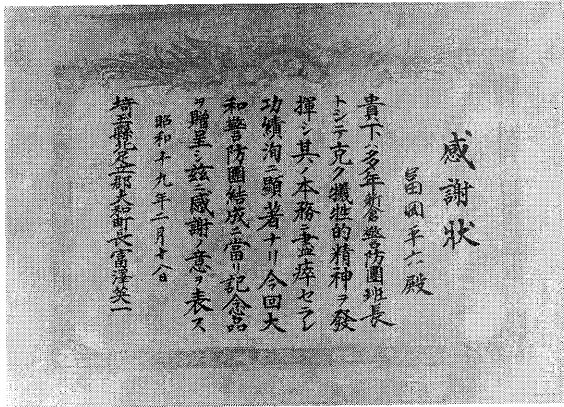 感謝状
冨岡平六殿
貴下ハ多年新倉警防團班長
トシテ克ク犠牲的精神ヲ發
揮シ其ノ本務ニ盡瘁セラレ
功績洵ニ顯著ナリ今回大
和警防團結成ニ當リ記念品
ヲ贈呈シ茲ニ感謝ノ意ヲ表ス
昭和十九年二月十八日
埼玉縣北足立郡大和町長冨澤英一